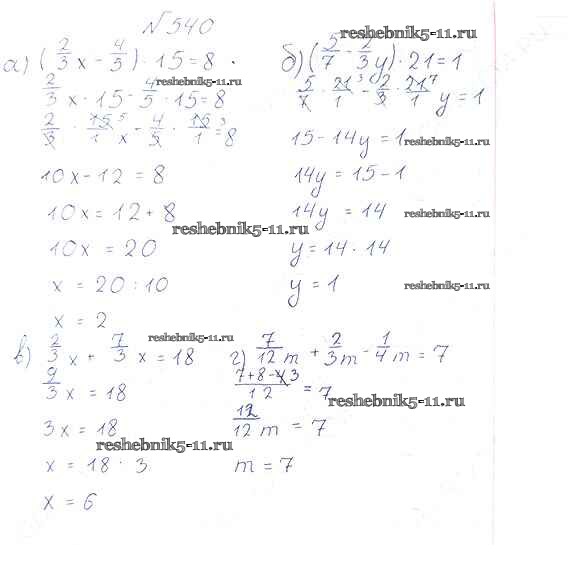 №540
а) (2/3 x - 4/5) · 15 = 8
2/3 x · 15 - 4/5 · 15 = 8
2/3 · 15⁵/1 x - 4/5 · 15³/1 = 8
10x - 12 = 8
10x = 12 + 8
10x = 20
x = 20 : 10
x = 2
б) (5/7 - 2/3 y) · 21 = 1
5/7 · 21³/1 - 2/3 · 21⁷/1 y = 1
15 - 14y = 1
14y = 15 - 1
14y = 14
y = 14 · 14
y = 1
в) 2/3 x + 7/3 x = 18
9/3 x = 18
3x = 18
x = 18 · 3
x = 6
г) 7/12 m + 2/3 m - 1/4 m = 7
7+8-3/12 = 7
12/12 m = 7
m = 7
reshebnik5-11.ru
reshebnik5-11.ru
reshebnik5-11.ru
reshebnik5-11.ru
reshebnik5-11.ru
reshebnik5-11.ru
reshebnik5-11.ru
reshebnik5-11.ru
reshebnik5-11.ru
reshebnik5-11.ru
reshebnik5-11.ru